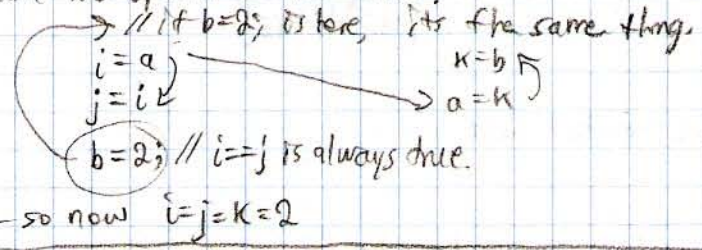 // if b=2; is here, its the same thing.
i = a k=b
j = i a = k
b=2; // i==j is always true.
- so now i=j=k=2